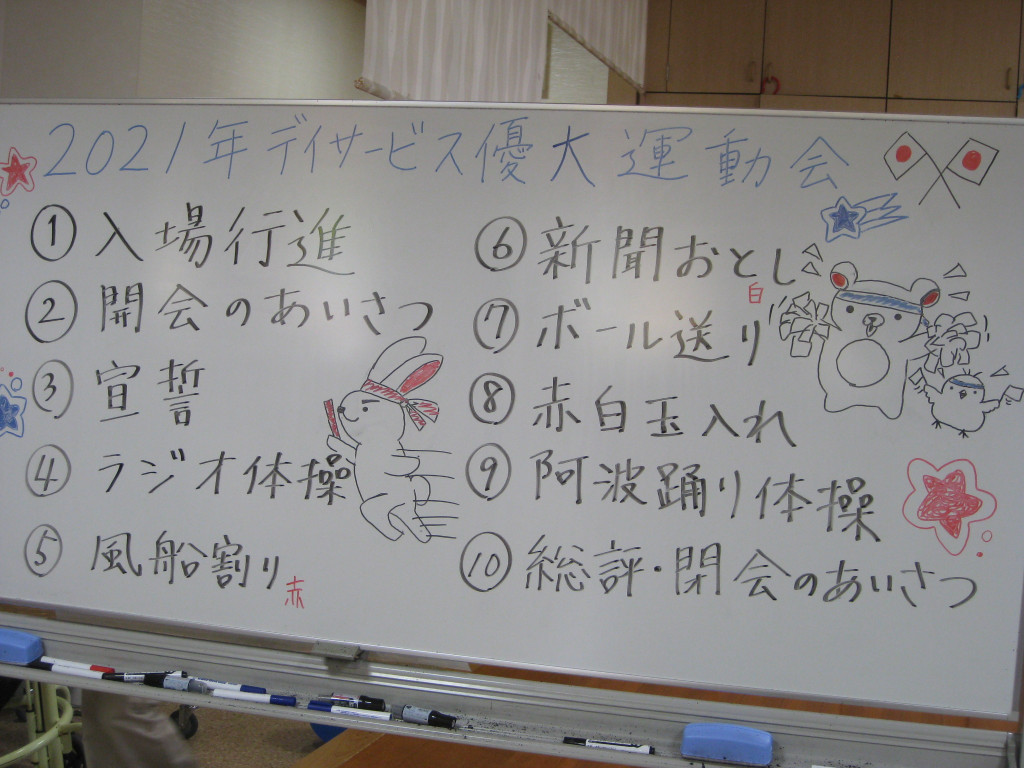 2021年デイサービス優大運動会
① 入場行進
② 開会のあいさつ
③ 宣誓
④ ラジオ体操
⑤ 風船割り
赤
⑥ 新聞おとし
白
⑦ ボール送り
⑧ 赤白玉入れ
⑨ 阿波踊り体操
⑩ 総評・閉会のあいさつ